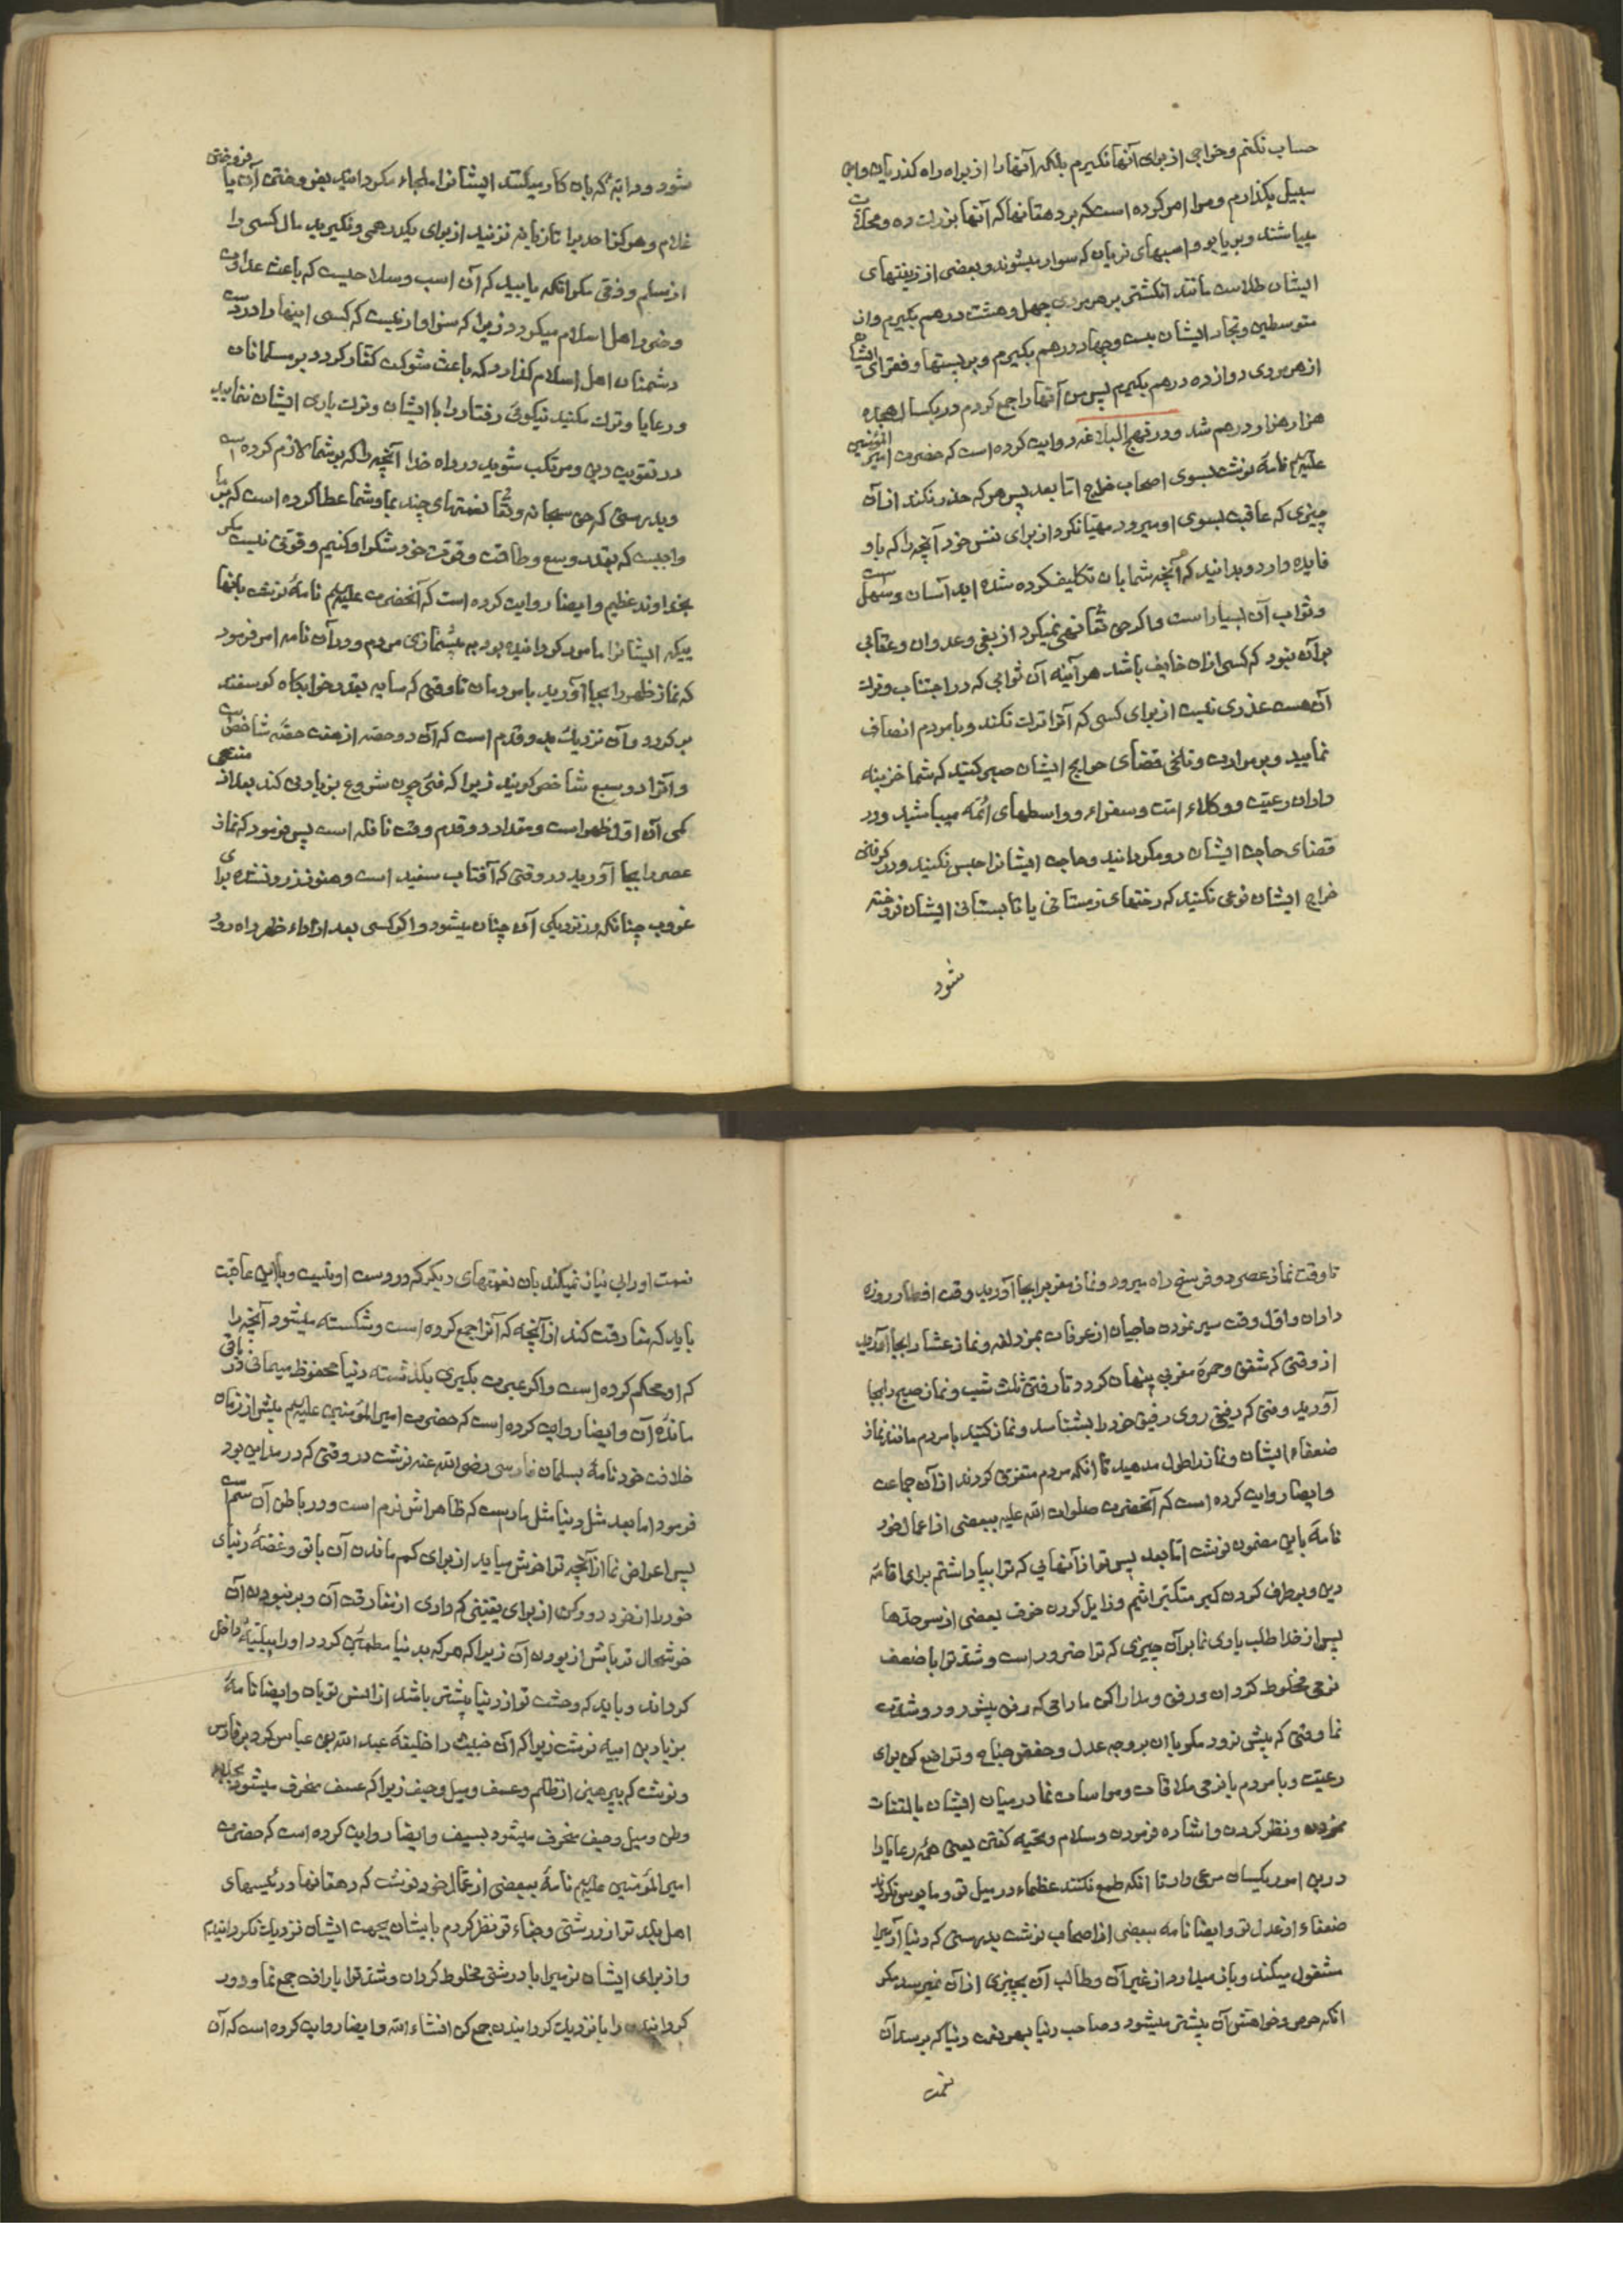 حساب نکنم و خراجی از برای آنها نگیرم بلکه آنها را از براه راه گذریان و ابن
سبیل بگذارم و مرا امر کرده است که بر دهقانها که آنها بزرگ ده و محلات
میباشند و بر یابو و اسبهای تریان که سوار میشوند و بعضی از زینتهای
ایشان طلاست مانند انگشتی بر هر مردی چهل و هشت درهم بگیرم و از
متوسطین و تجار ایشان بیست و چهار درهم بگیرم و بر پستها و فقرای ایشان
از هر مردی دوازده درهم بگیرم پس من آنها را جمع کردم در یکسال هجده
هزار هزار درهم شد و در نهج البلاغه روایت کرده است که حضرت امیر المؤمنین
علیه السلم نامهٔ نوشت بسوی اصحاب خراج اما بعد پس هر که حذر نکند از آن
چیزی که عاقبت بسوی او میرود مهیا نکرد از برای نفس خود آنچه را که باو
فایده دارد و بدانید که آنچه شما بان تکلیف کرده شده اید آسان و سهل است
و ثواب آن بسیار است و اگر حق تعالی نهی نمیکرد از بغی و عدوان و عقابی
بر آن نبود که کسی ازان خایف باشد هر آینه آن ثوابی که در اجتناب و ترک
آن هست عذری نیست از برای کسی که آنرا ترک نکند و با مردم انصاف
نمایید و بر مرارت و تلخی قضای حوایج ایشان صبر کنید که شما خزینه
داران رعیت و وکلاء امت و سفراء و واسطهای ائمه میباشید و در
قضای حاجت ایشان رو مگردانید و حاجت ایشانرا حبس نکنید و در گرفتن
خراج ایشان نوعی نکنید که رختهای زمستانی یا تابستانی ایشان فروخته
شود
شود و دابهٔ که بان کار میکنند ایشانرا ملجاء مگردانید بفروختن آن یا فروختن
غلام و هرگز احدیرا تازیانه نزنید از برای یکدرهمی و نگیرید مال کسی را
از مسلم و ذمّی مگر آنکه یابید که آن اسب و سلاحیست که باعث عداوت
و ضرر اهل اسلام میگردد زیرا که سزاوار نیست که کسی اینها را در دست
دشمنان اهل اسلام گذارد که باعث شوکت کفار گردد بر مسلمانان
و رعایا و ترک مکنید نیکوئی رفتار را با ایشان و ترک یاری ایشان ننمایید
در تقویت دین و مرتکب شوید در راه خدا آنچه را که بر شما لازم کرده است
و بدرستی که حق سبحانه و تعالی نعمتهای چند بما و شما عطا کرده است که بر ما
واجبست که بقدر وسع و طاقت و قوت خود شکر او کنیم و قوتی نیست مگر
بخداوند عظیم و ایضا روایت کرده است که آنحضرت علیه السلم نامهٔ نوشت بآنها
ییکه ایشانرا مامور گردانیده بود به پیشنمازی مردم و در آن نامه امر فرمود
که نماز ظهر را بجا آورید با مردمان تا وقتی که سایه بقدر خوابگاه گوسفند
بر گردد و آن نزدیک بدو قدم است که آن دو حصه از هفت حصّه شاخص است
و آنرا دو سبع شاخص گویند زیرا که فئ چون شروع بزیادتی کند بعد از منتهی
کمی آن اول ظهر است و مقدار دو قدم وقت نافله است پس فرمود که نماز
عصر را بجا آورید در وقتی که آفتاب سفید است و هنوز زرد نشده برای
غروب چنانکه در نزدیکی آن چنان میشود و اگر کسی بعد از اداء ظهر راه رود
تا وقت نماز عصر دو فرسخ راه میرود و نماز مغربرا بجا آورید وقت افطار روزه
داران و اول وقت سیر نمودن حاجیان از عرفات بمزدلفه و نماز عشا را بجا آورید
از وقتی که شفق و حمرهٔ مغربی پنهان گردد تا رفتن ثلث شب و نماز صبح را بجا
آورید وقتی که رفیق روی رفیق خود را بشناسد و نماز کنید با مردم مانند نماز
ضعفاء ایشان و نماز را طول مدهید تا آنکه مردم متفرق گردند از آن جماعت
و ایضا روایت کرده است که آنحضرت صلوات الله علیه ببعضی از اعمال خود
نامهٔ باین مضمون نوشت اما بعد پس تو از آنهایی که ترا بپا داشتم برای اقامهٔ
دین و برطرف کردن کبر متکبر اثیم و زایل کردن خوف بعضی از سرحدّها
پس از خدا طلب یاری نما بر آن چیزی که ترا ضرور است و شدّت را با ضعف
نرمی مخلوط گردان و رفق و مدارا کن مادامی که رفق پیش رود و شدت
نما وقتی که پیش نرود مگر بان بر وجه عدل و خفض جناح و تواضع کن برای
رعیت و با مردم با نرمی ملاقات و مواسات نما در میان ایشان بالتفات
نمودن و نظر کردن و اشاره فرمودن و سلام و تحیه گفتن یعنی همهٔ رعایا را
درین امور یکسان مرعی دار تا آنکه طمع نکنند عظماء در میل تو و مایوس نگردند
ضعفاء از عدل تو و ایضا نامه ببعضی از اصحاب نوشت بدرستی که دنیا آدمیرا
مشغول میکند و باز میدارد از غیر آن و طالب آن بچیزی از آن نمیرسد مگر
آنکه حرص و خواهش آن بیشتر میشود و صاحب دنیا بهر نعمت دنیا که برسد آن
نعمت
نعمت او را بی نیاز نمیکند بان نعمتهای دیگر که در دست او نیست و با این عاقبت
باید که مفارقت کند از آنچه که آنرا جمع کرده است و شکسته میشود آنچه را
که او محکم کرده است و اگر عبرت بگیری بگذشته دنیا محفوظ میمانی در باقی
ماندهٔ آن و ایضا روایت کرده است که حضرت امیر المؤمنین علیه السلم پیش از زمان
خلافت خود نامهٔ بسلمان فارسی رضی الله عنه نوشت در وقتی که در مداین بود
فرمود اما بعد مثل دنیا مثل ماریست که ظاهراش نرم است و در باطن آن سم است
پس اعراض نما از آنچه ترا خوش میاید از برای کم ماندن آن با تو و غصّهٔ دنیای
خود را از خود دور کن از برای یقینی که داری از مفارقت آن و بر نبودن آن
خوشحال تر باش از بودن آن زیرا که هر که بدنیا مطمئن گردد او را ببلیّهٔ داخل
گرداند و باید که وحشت تو از دنیا بیشتر باشد از انس تو بان و ایضا نامهٔ
بزیاد بن ابیه نوشت زیرا که آن خبیث را خلیفهٔ عبد الله بن عباس کرد بر فارس
و نوشت که بپرهیز از ظلم و عسف و میل و حیف زیرا که عسف منحرف میشود بجلای
وطن و میل و حیف منحرف میشود بسیف و ایضا روایت کرده است که حضرت
امیر المؤمنین علیه السلم نامهٔ ببعضی از عمال خود نوشت که دهقانها و رئیسهای
اهل بلد تو از درشتی و جفاء تو نظر کردم بایشان بجهت ایشان نزدیک نگردانیدم
و از برای ایشان نرمیرا با درشتی مخلوط گردان و شدّت را با رافت جمع نما و دور
گردانیدن را با نزدیک گردانیدن جمع کن انشاء الله و ایضا روایت کرده است که آن